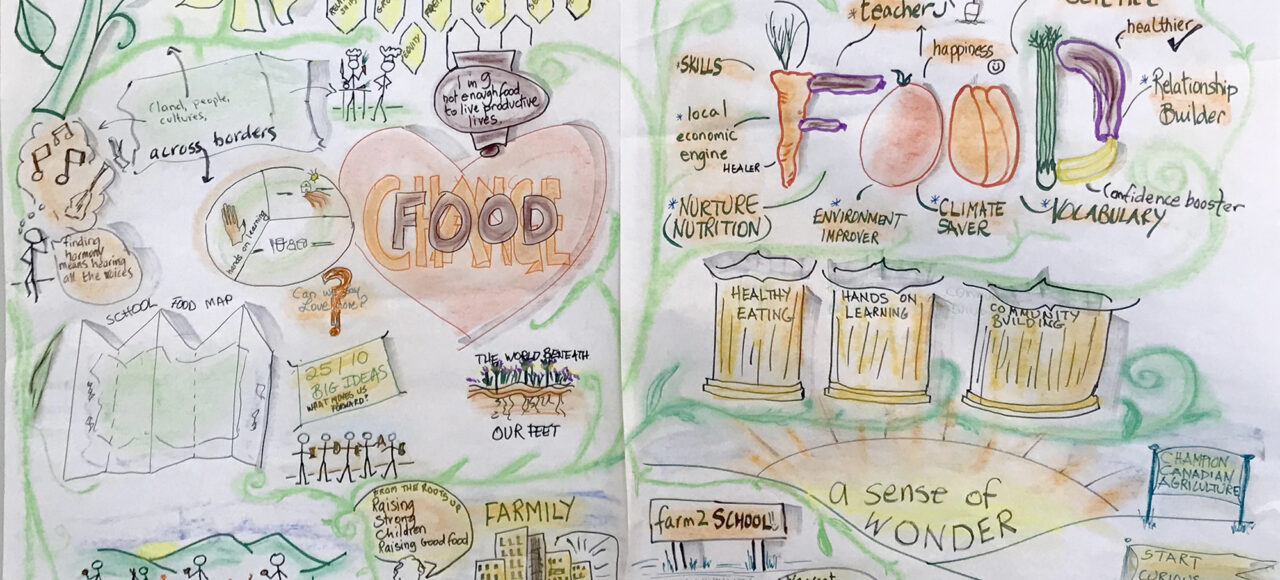 EQUITY
(land, people,
cultures,
across borders
1 in 9
not enough food
to live productive
lives.
CHANGE
FOOD
hands on learning
finding
harmony
means hearing
all the voices
SCHOOL FOOD MAP
25/10
BIG IDEAS
WHAT MOVES US
FORWARD?
THE WORLD BENEATH
OUR FEET
FROM THE ROOTS UP
Raising
Strong
Children
Raising Good food
FARMILY
* teacher
SKILLS
happiness
healthier
* Relationship
Builder
* local
economic
engine
HEALER
FOOD
* NURTURE
(NUTRITION)
* ENVIRONMENT
IMPROVER
* CLIMATE
SAVER
* VOCABULARY
Confidence booster
HEALTHY
EATING
HANDS ON
LEARNING
COMMUNITY
BUILDING
a sense of
WONDER
farm2SCHOOL!!
CHAMPION
CANADIAN
AGRICULTURE
START